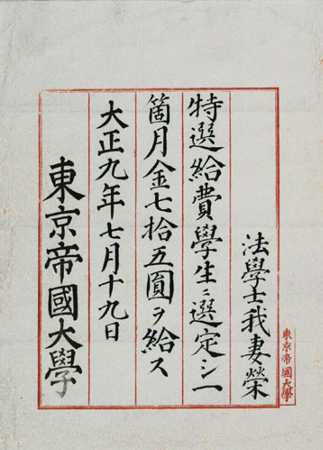 法學士我妻榮
特選給費學生ニ選定シ一
箇月金七拾五圓ヲ給ス
大正九年七月十九日
東京帝國大學
東京帝國大學